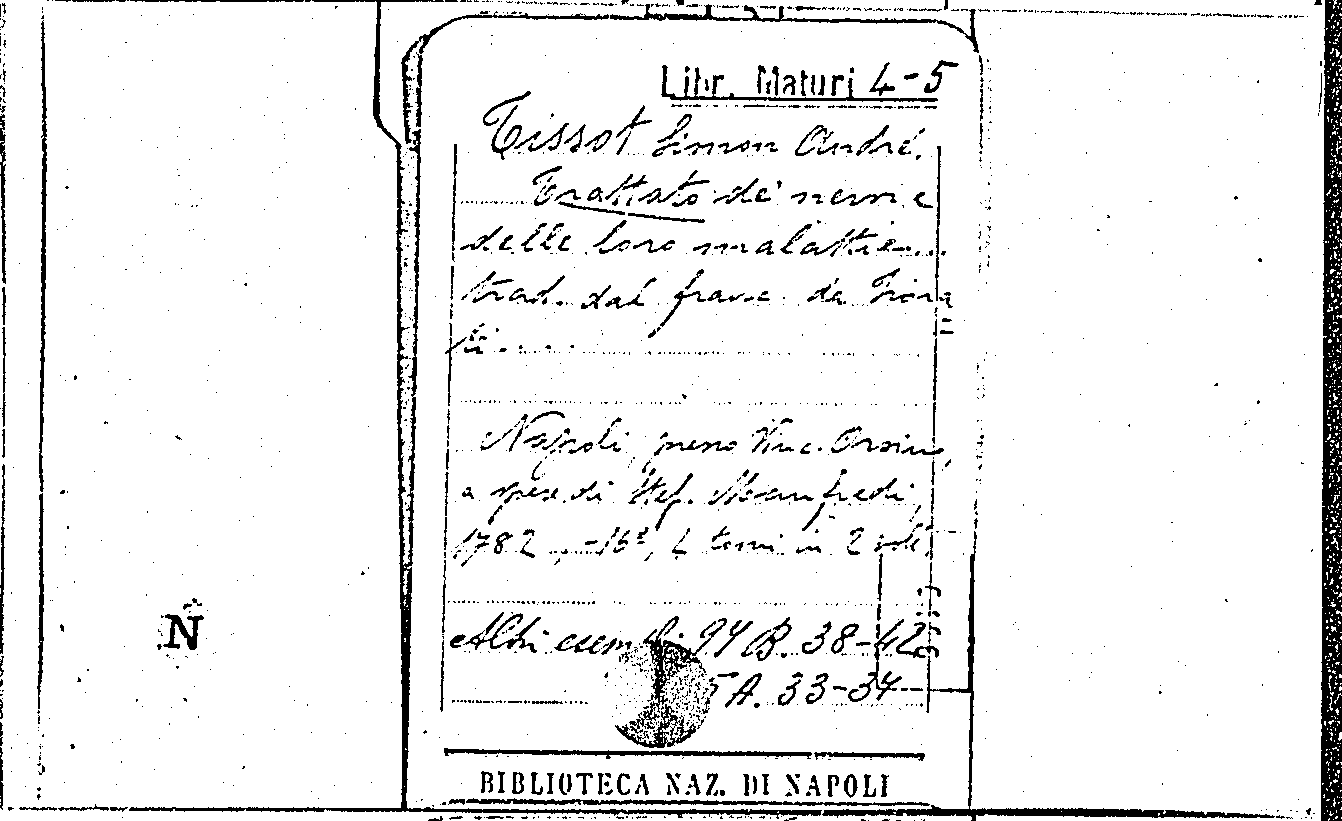 Libr. Maturi 4-5
Tissot Simon André.
Trattato de' nervi e
delle loro malattie...
trad. dal franc. da Fiora
=
ti....
Napoli, presso Vinc. Orsino,
a spese di Stef. Manfredi,
1782, -16º, 4 tomi in 2 voll.
Altri esempl: 94 B. 38-42
5 A. 33-34
N
BIBLIOTECA NAZ. DI NAPOLI